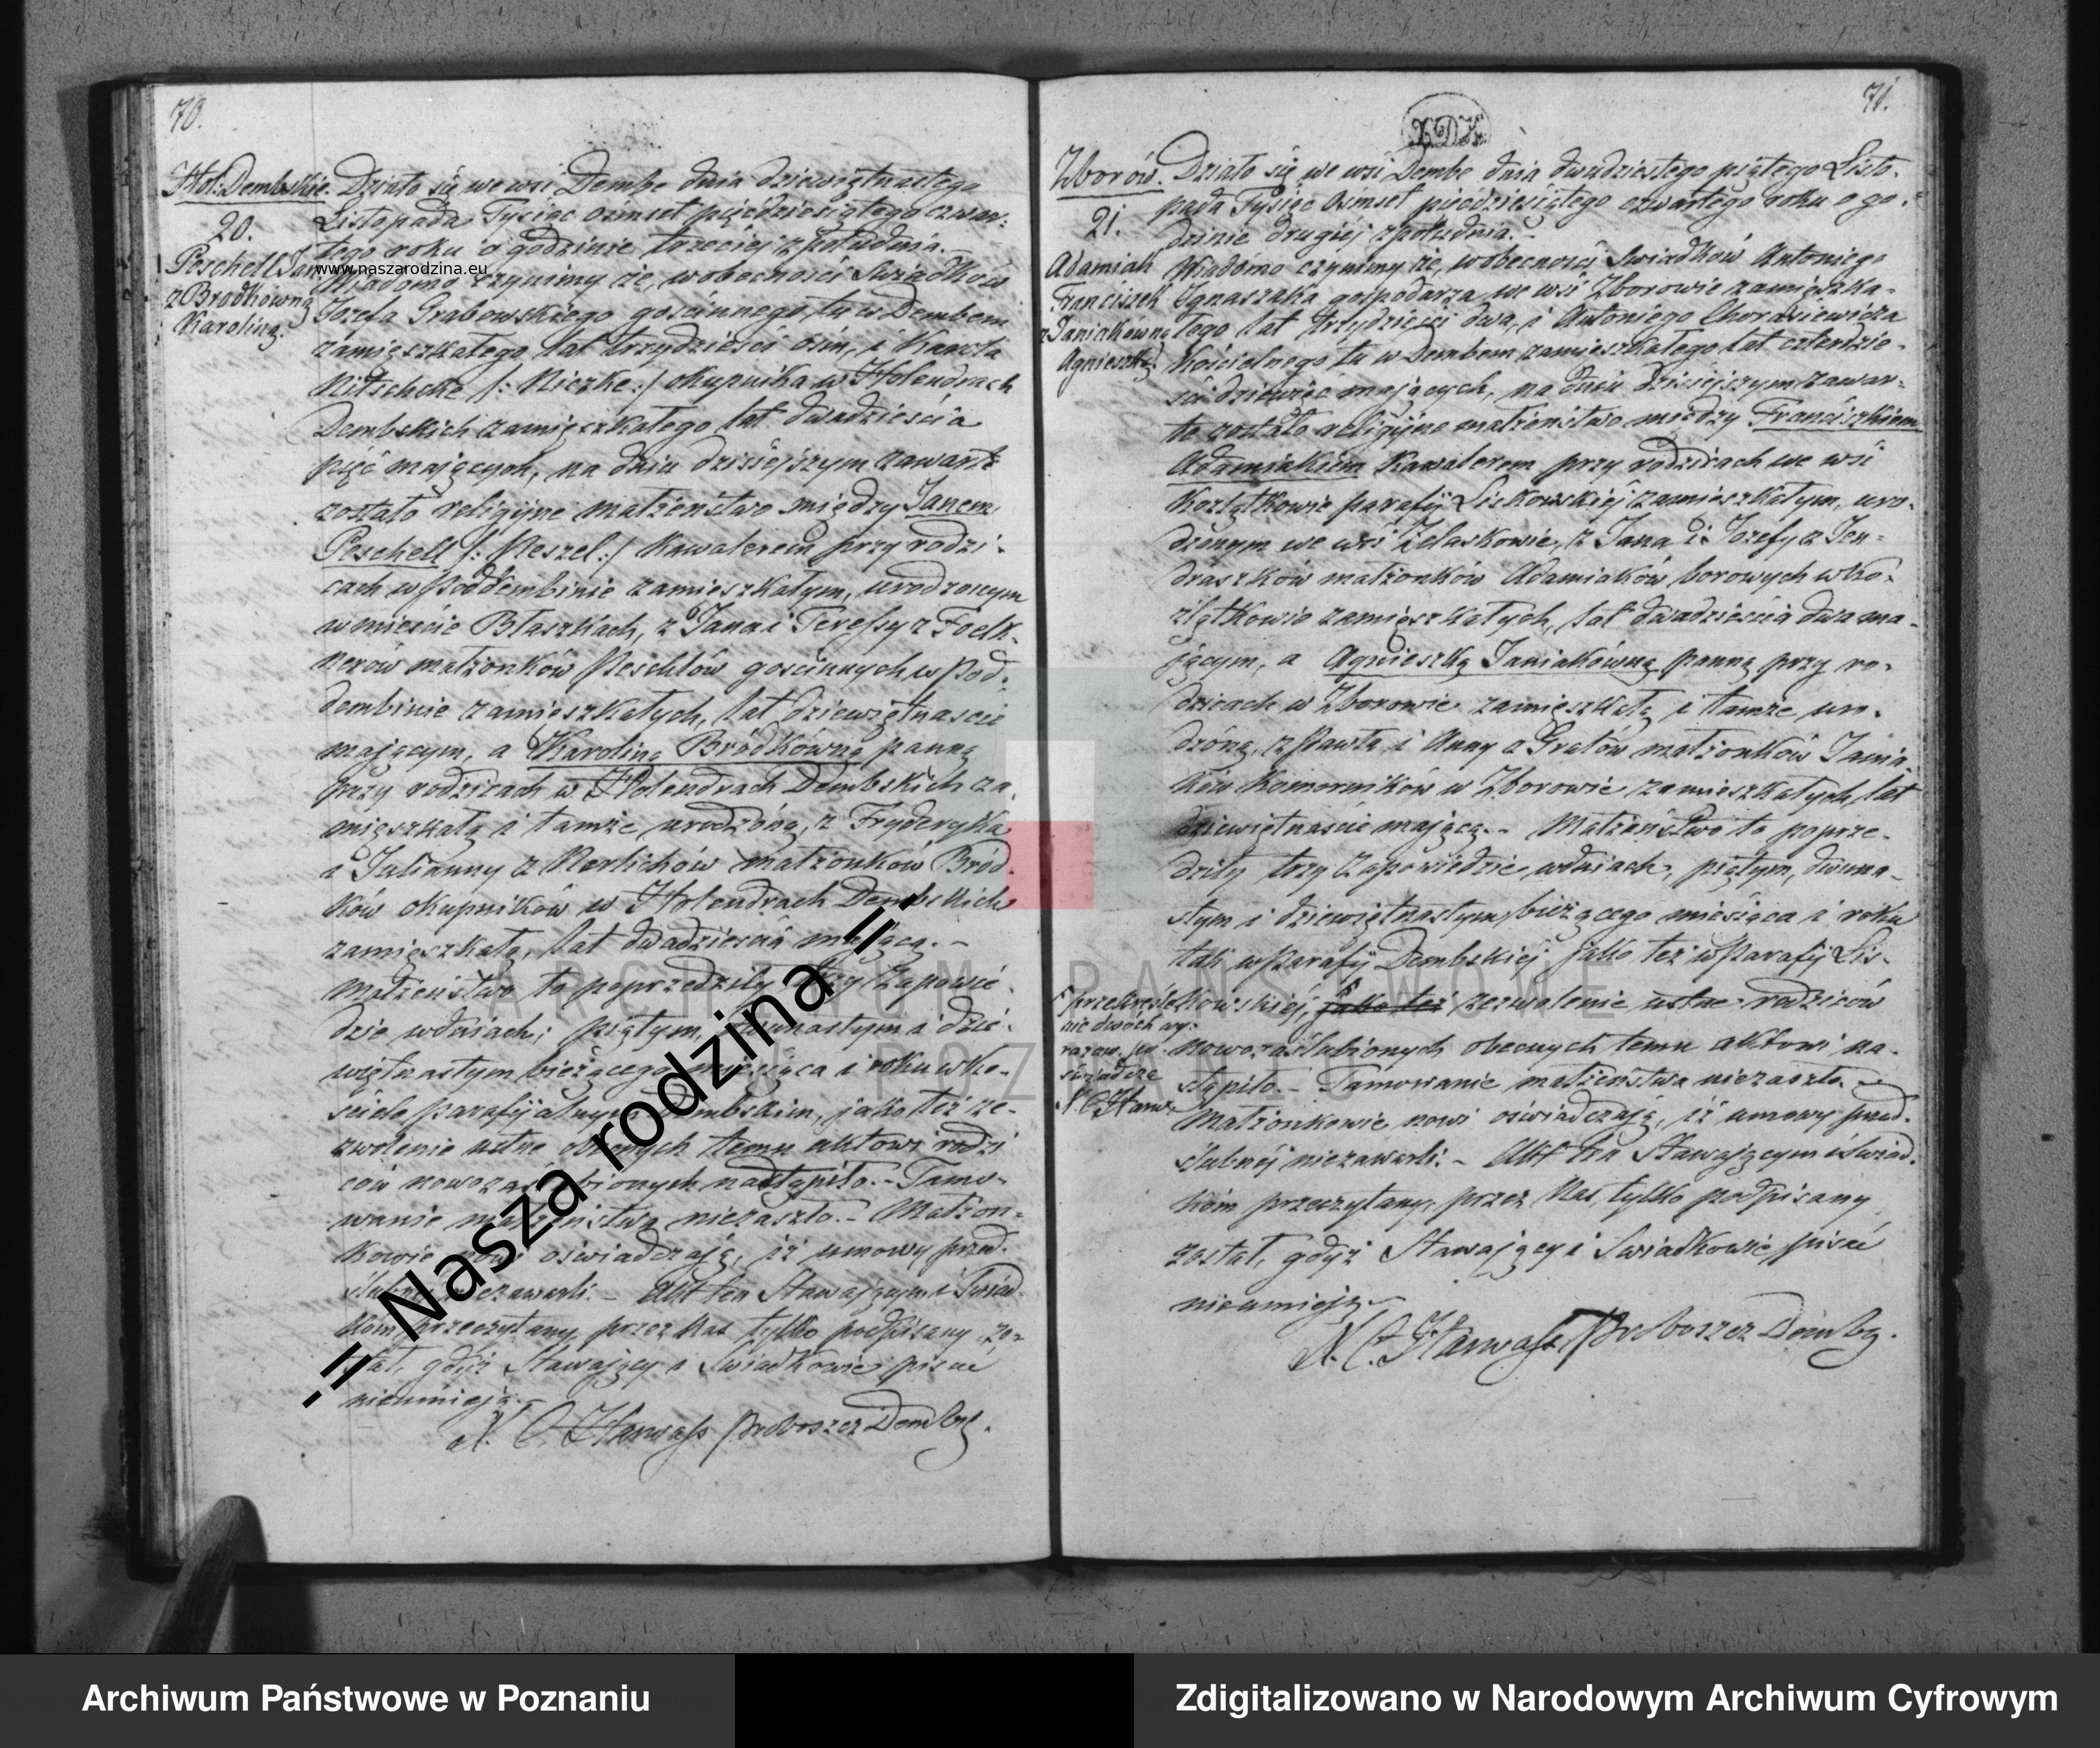 70.
Hol: Dembskie.
20.
Peschell Jan
z Brodkówną
Karoliną.
Działo się we wsi Dembe dnia dziewiętnastego
Listopada Tysiąc ośmset pięćdziesiątego czwar-
tego roku o godzinie trzeciej z południa.-
Wiadomo czynimy że, w obecności Swiadków
Józefa Grabowskiego gościnnego tu w Dembem
zamięszkałego lat trzydzieści ośm, i Karola
Nitschcke /: Niczke :/ okupnika w Holendrach
Dembskich zamięszkałego lat dwadzieścia
pięć mających, na dniu dzisiejszym zawarte
zostało religijne małżeństwo między Janem
Peschell /: Peszel :/ Kawalerem przy rodzi-
cach w Poddembinie zamieszkałym, urodzonym
w mieście Błaszkach, z Jana i Teressy z Foelk-
nerów małżonków Peschlów gościnnych w Pod-
dembinie zamieszkałych, lat dziewiętnaście
mającym, a Karoliną Bródkówną panną
przy rodzicach w Holendrach Dembskich za-
mięszkałą i tamże urodzóną, z Fryderyka
i Julianny z Nerlichów małżonków Bród-
ków okupników w Holendrach Dembskich
zamięszkałą, lat dwadzieścia mającą.-
Małżeństwo to poprzedziły trzy zapowie-
dzie w dniach; piątym, dwunastym i dzie-
więtnastym bieżącego miesiąca i roku w Ko-
ściele parafijalnym Dembskim, jako też ze-
zwolenie ustne obecnych temu aktowi rodzi
ców nowozaślubionych nastąpiło.- Tamo-
wanie małżeństwa niezaszło.- Małżon-
kowie nowi oświadczają, iż umowy przed-
ślubnej niezawarli.- Akt ten Stawającym i Swiad-
kom przeczytany, przez Nas tylko podpisany zo-
stał, gdyż Stawający i Swiadkowie pisać
nieumieją.-
X. C. Harwass Proboszcz Dembsk.
71.
Zborów.
21.
Adamiak
Franciszek
z Janiakówną
Agnieszką.
Działo się we wsi Dembe dnia dwudziestego piątego Listo-
pada Tysiąc Ośmset pięćdziesiątego czwartego roku o go-
dzinie drugiej z południa.-
Wiadomo czynimy że, w obecności Swiadków Antoniego
Ignaszaka gospodarza we wsi Zborowie zamięszka-
łego lat trzydzieści dwa, i Antoniego Chorasiewicza
Kościelnego tu w Dembem zamieszkałego lat czterdzie-
ści dziewięć mających, na dniu dzisiejszym zawar-
te zostało religijne małżeństwo między Franciszkiem
Adamiakiem Kawalerem przy rodzicach we wsi
Koźlątkowie parafij Liskowskiej zamieszkałym, uro-
dzonym we wsi Żelaskowie, z Jana i Józefy z Jen-
draszków małżonków Adamiaków borowych w Ko-
źlątkowie zamięszkałych, lat dwadzieścia dwa ma-
jącym, a Agnieszką Janiakówną panną przy ro-
dzicach w Zborowie zamięszkałą i tamże uro-
dzóną, z Pawła i Anny z Gralów małżonków Jania
ków Komorników w Zborowie zamieszkałych, lat
dziewiętnaście mającą.- Małżeństwo to poprze-
dziły trzy zapowiedzie w dniach, piątym, dwuna-
stym i dziewiętnastym bieżącego miesiąca i roku
tak w Parafij Dembskiej jako też w Parafij Lis-
kowskiej, jako też zezwolenie ustne rodziców
nowozaślubionych obecnych temu aktowi na-
stąpiło.- Tamowanie małżeństwa niezaszło.-
Małżonkowie nowi oświadczają, iż umowy przed-
ślubnej niezawarli.- Akt ten Stawającym i Swiad-
kom przeczytany, przez Nas tylko podpisany
został, gdyż Stawający i Swiadkowie pisać
nieumieją.-
X. C. Harwass Proboszcz Dembsk.
przekreśle
nie dwóch wy-
razów po-
świadcza
X. C. Harw.
www.naszarodzina.eu
-= Nasza rodzina =-
ARCHIWUM PAŃSTWOWE
W POZNANIU
Archiwum Państwowe w Poznaniu
Zdigitalizowano w Narodowym Archiwum Cyfrowym